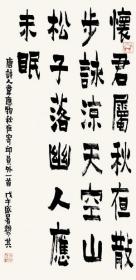 懷君屬秋夜散
步詠涼天空山
松子落幽人應
未眠
唐詩人韋應物秋夜寄邱員外一首